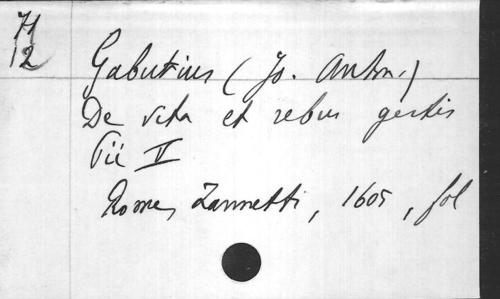 H
12
Gabutius (Jo. Anton.)
De vita et rebus gestis
Pii V
Romæ, Zannetti, 1605, fol